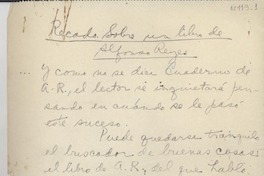 Recado Sobre un libro de
Alfonso Reyes
Y como no se dice Cuaderno de
A. R., el lector se inquietará pen-
sando en cuando se le pasó
este suceso.
Puede quedarse tranquilo
el buscador de buenas cosas:
el libro de A. R., del que hablo,